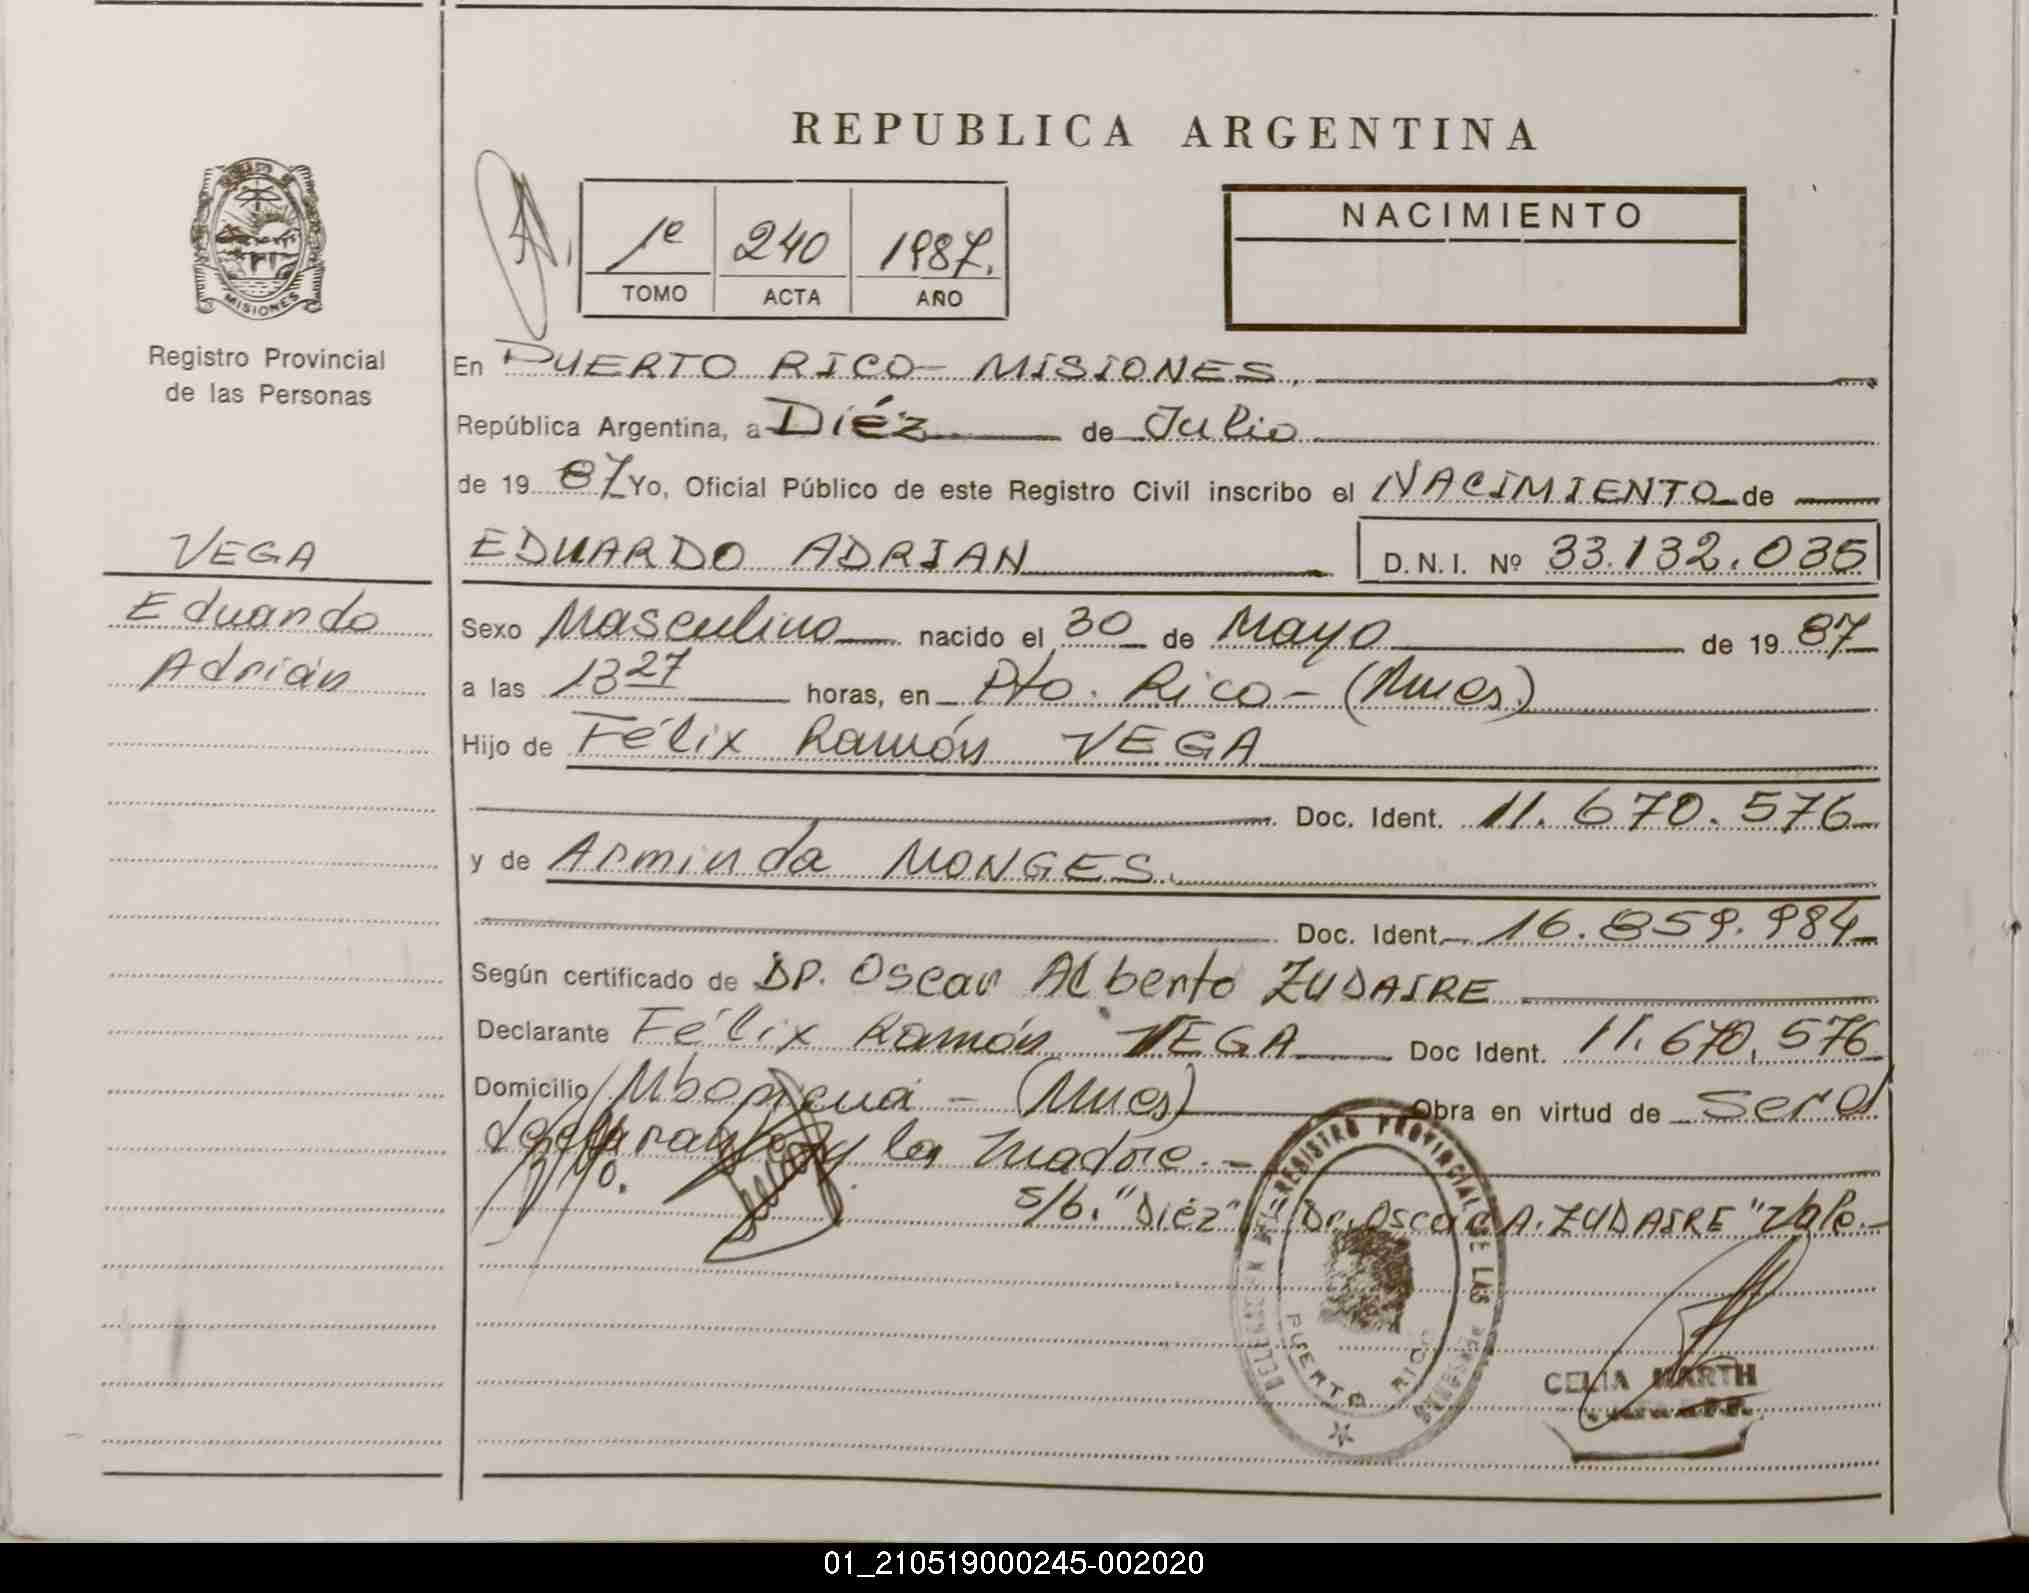 REPUBLICA ARGENTINA
MISIONES
Registro Provincial
de las Personas
1º 240 1987.
TOMO ACTA AÑO
NACIMIENTO
En PUERTO RICO - MISIONES.
República Argentina, a Diéz de Julio
de 19 87 Yo, Oficial Público de este Registro Civil inscribo el NACIMIENTO de
VEGA
EDUARDO ADRIAN D.N.I. Nº 33.132.035
Eduardo
Adrián
Sexo Masculino nacido el 30 de Mayo de 19 87
a las 13 27 horas, en Pto. Rico - (Mnes.)
Hijo de Félix Ramón VEGA
Doc. Ident. 11.670.576
y de Arminda MONGES.
Doc. Ident. 16.859.984
Según certificado de DR. Oscar Alberto ZUDAIRE
Declarante Félix Ramón VEGA Doc Ident. 11.670.576
Domicilio Mbopicuá - (Mnes) Obra en virtud de Ser el
declarante y la madre. -
s/b. "Diéz" "Dr. Oscar A. ZUDAIRE" Vale. -
REGISTRO PROVINCIAL DE LAS PERSONAS
PUERTO RICO
CELIA MARTH
01_210519000245-002020